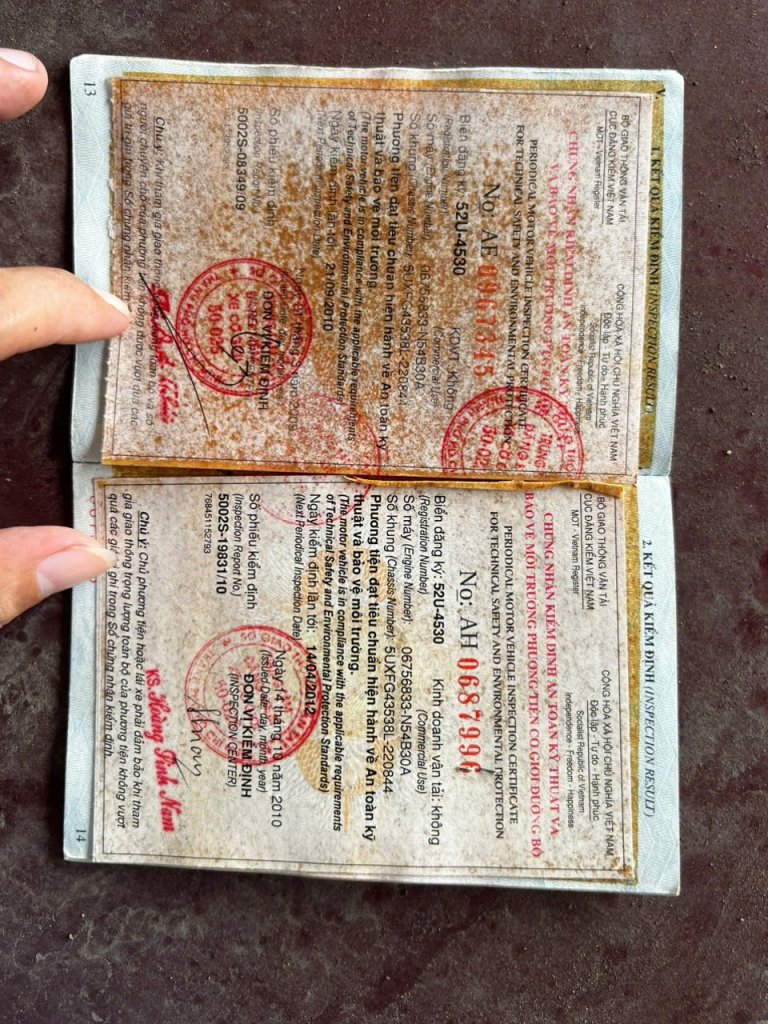 1. KẾT QUẢ KIỂM ĐỊNH (INSPECTION RESULT)
BỘ GIAO THÔNG VẬN TẢI
CỤC ĐĂNG KIỂM VIỆT NAM
MOT - Vietnam Register
CỘNG HÒA XÃ HỘI CHỦ NGHĨA VIỆT NAM
Độc lập - Tự do - Hạnh phúc
Socialist Republic of Vietnam
Independence - Freedom - Happiness
CHỨNG NHẬN KIỂM ĐỊNH AN TOÀN KỸ
VÀ BẢO VỆ MÔI TRƯỜNG
PERIODICAL MOTOR VEHICLE INSPECTION CERTIFICATE
FOR TECHNICAL SAFETY AND ENVIRONMENTAL PROTECTION
No: AE
Biển đăng ký: 52U-4530
KDVT: Không
(Registration Number)
(Commercial Use)
Số máy (Engine Number): 06756833-N54B30A
Số khung (Chassis Number): 5UXFG43538L-220844
Phương tiện đạt tiêu chuẩn hiện hành về An toàn kỹ
thuật và bảo vệ môi trường
(The motor vehicle is in compliance with the applicable requirements
of Technical Safety and Environmental Protection Standards
Ngày kiểm định lần tới: 21/09/2010
(Next Periodical Inspection Date)
Số phiếu kiểm định
(Inspection Report No.)
5002S-08349/09
ĐƠN VỊ KIỂM ĐỊNH
50-02S
Chú ý: Khi tham gia giao thông
13
2. KẾT QUẢ KIỂM ĐỊNH (INSPECTION RESULT)
BỘ GIAO THÔNG VẬN TẢI
CỤC ĐĂNG KIỂM VIỆT NAM
MOT - Vietnam Register
CỘNG HÒA XÃ HỘI CHỦ NGHĨA VIỆT NAM
Độc lập - Tự do - Hạnh phúc
Socialist Republic of Vietnam
Independence - Freedom - Happiness
CHỨNG NHẬN KIỂM ĐỊNH AN TOÀN KỸ THUẬT VÀ
BẢO VỆ MÔI TRƯỜNG PHƯƠNG TIỆN CƠ GIỚI ĐƯỜNG BỘ
PERIODICAL MOTOR VEHICLE INSPECTION CERTIFICATE
FOR TECHNICAL SAFETY AND ENVIRONMENTAL PROTECTION
No: AH 0687996
Biển đăng ký: 52U-4530
Kinh doanh vận tải: không
(Registration Number)
(Commercial Use)
Số máy (Engine Number): 06756833-N54B30A
Số khung (Chassis Number): 5UXFG43538L-220844
Phương tiện đạt tiêu chuẩn hiện hành về An toàn kỹ
thuật và bảo vệ môi trường.
(The motor vehicle is in compliance with the applicable requirements
of Technical Safety and Environmental Protection Standards)
Ngày kiểm định lần tới: 14/04/2012
(Next Periodical Inspection Date)
Số phiếu kiểm định
(Inspection Report No.)
5002S-19831/10
768451152793
Ngày 14 tháng 10 năm 2010
(Issued Date: day, month, year)
ĐƠN VỊ KIỂM ĐỊNH
(INSPECTION CENTER)
KS. Hoàng Tình Nam
Chú ý: Chủ phương tiện hoặc lái xe phải đảm bảo khi tham
gia giao thông trọng lượng toàn bộ của phương tiện không vượt
quá các giá trị ghi trong Sổ chứng nhận kiểm định.
14